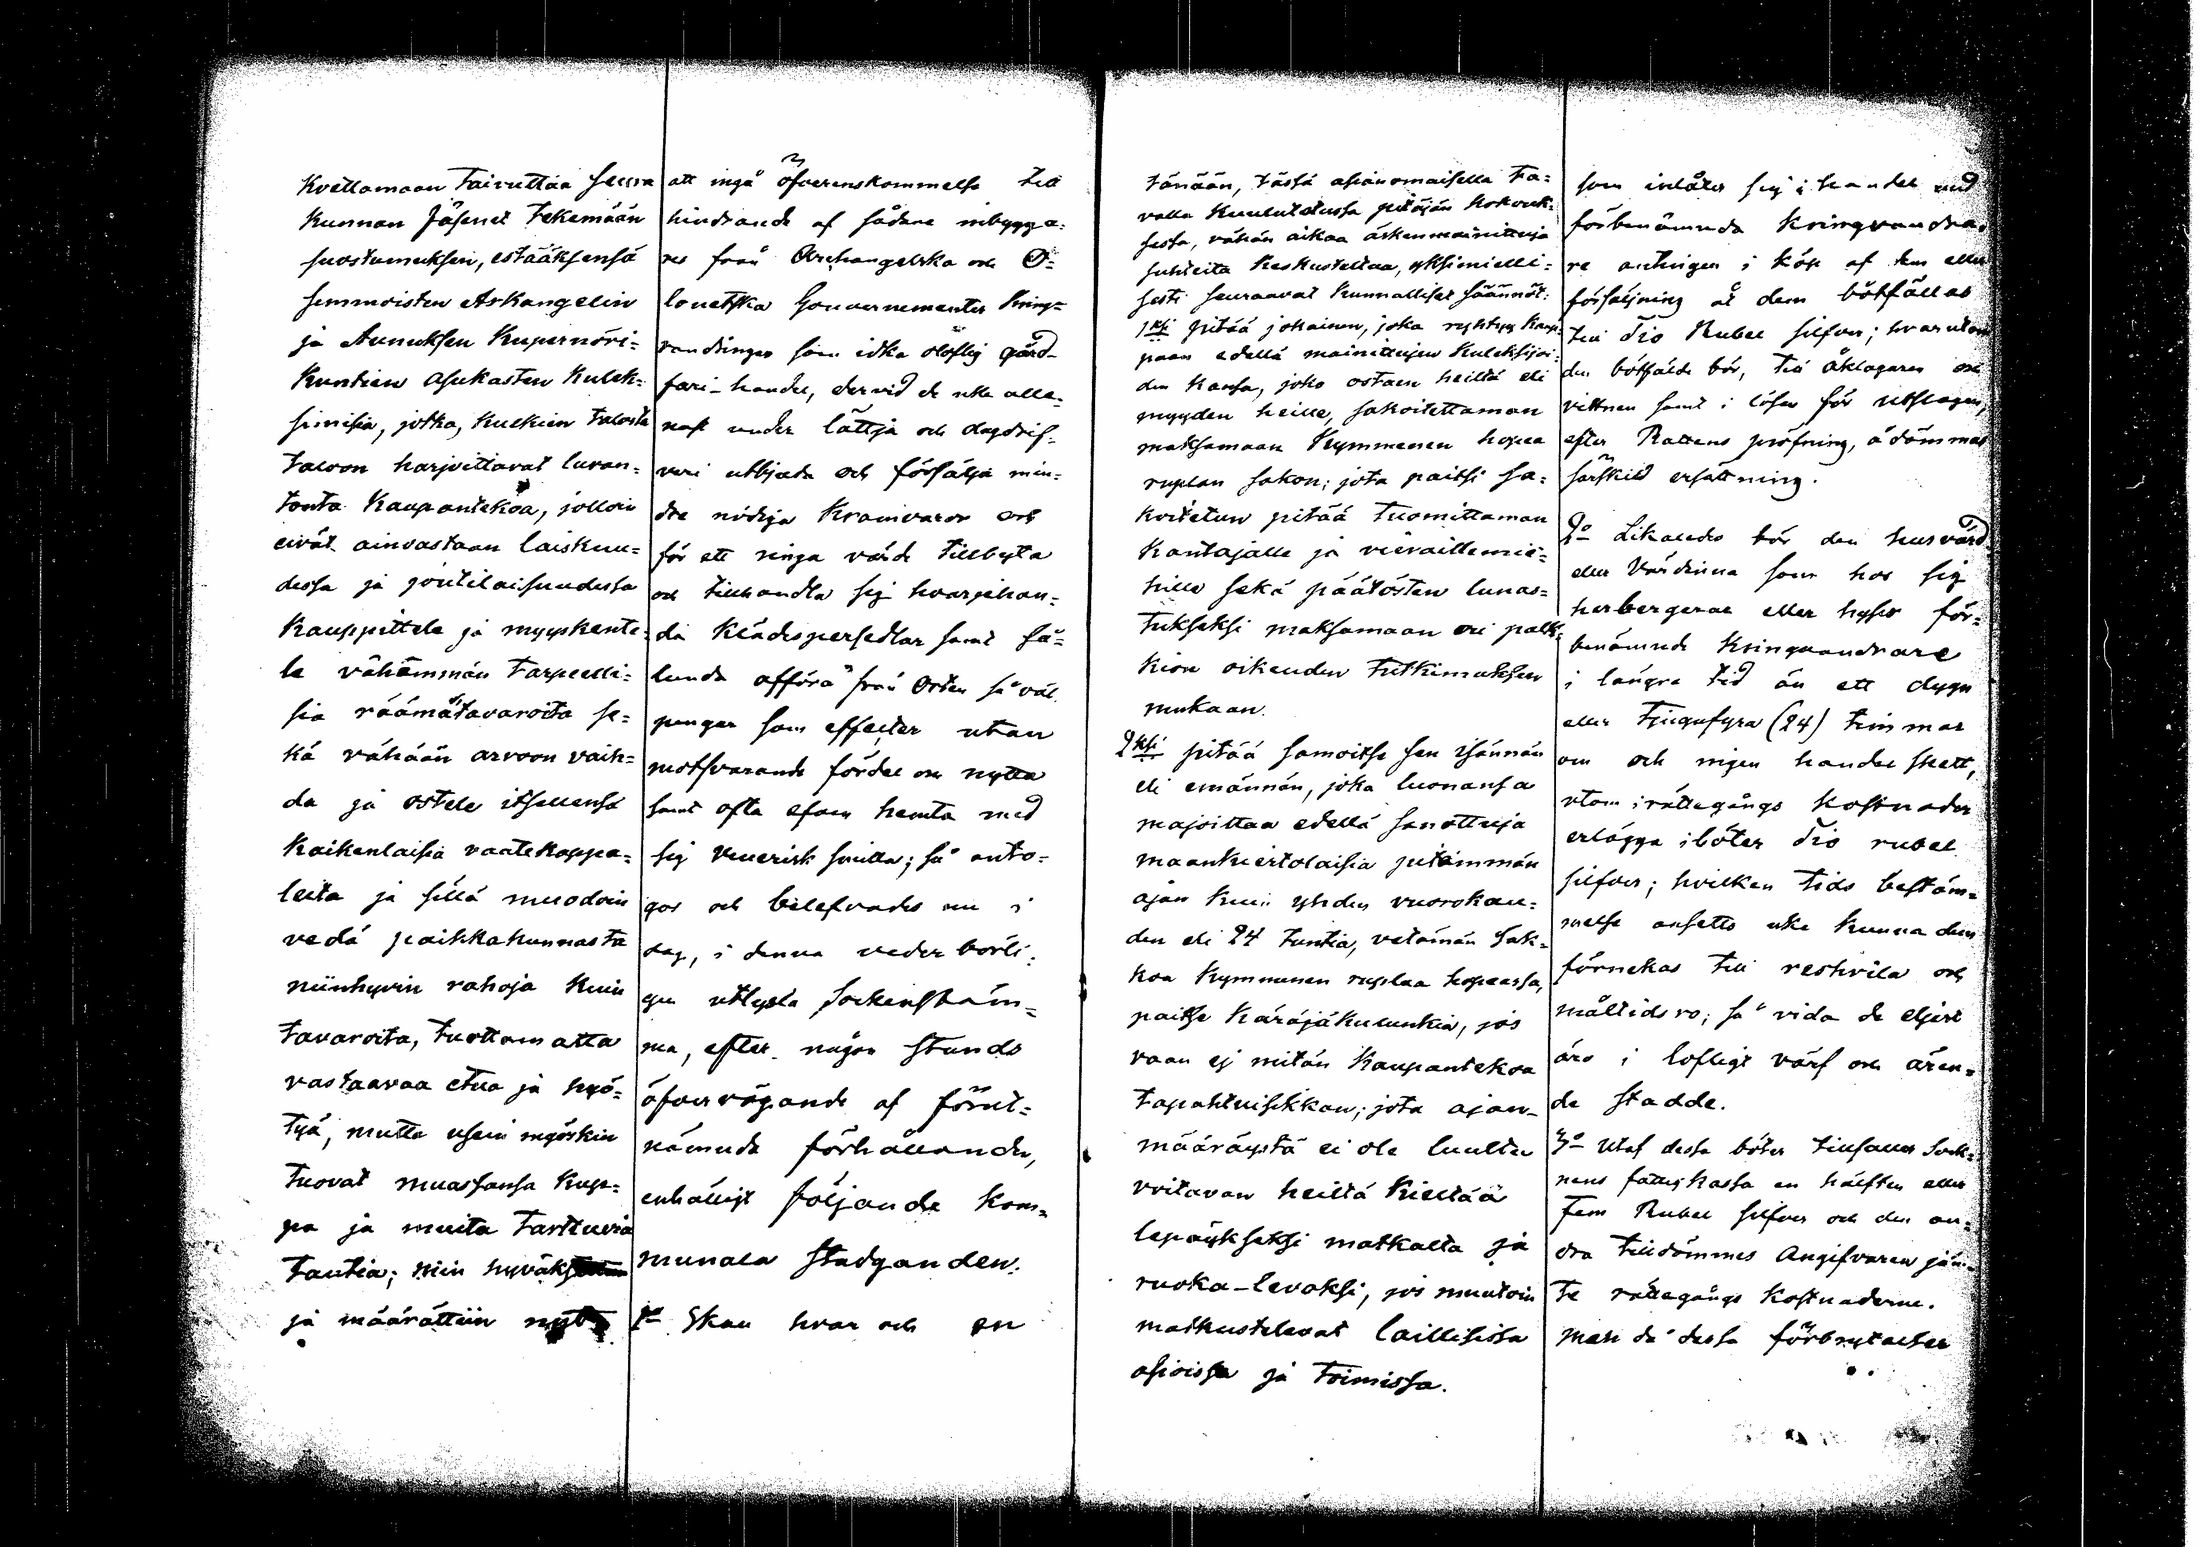 Kvettamaan Taivuttaa Seura
Kunnan Jäsenet Tekemään
suostumuksen, estääksensä
semmoisten Arkangelin
ja Aunuksen Kupernöri=
Kuntien asukasten Kulek=
simisia, jotka, Kulkien Talosta
Taloon harjoittavat luvan=
tonta Kaupantekoa, jolloin
eivät ainoastaan laiskuu=
dessa ja joutilaisuudessa
Kauppittele ja myyskente=
le vähemmän Tarpeelli=
sia räämätavaroita se=
kä vähään arvoon vaih=
da ja ostele itsellensä
Kaikenlaisia vaatekappa=
leita ja sillä muodoin
vedä paikkakunnasta
niinhyvin rahoja Kuin
Tavaroita, Tuottamatta
vastaavaa etua ja hyö=
tyä, mutta usein myöskin
Tuovat muassansa Kup=
pa ja muita Tarttuvia
Tautia; niin hyväks
ja määrättiin nyt
att ingå öfverenskommelse till
hindrande af sådane inbygga=
res från Archangelska och O=
lonetska Gouvernementer Kring=
vandringar som idka olöflig gård=
fari-handel, dervid de icke alle=
nast under lättja och dagdrif=
veri utbjuda och försälja min=
dre nödiga Kramvaror och
för ett ringa värde Tillbyta
och tillhandla sig hvarjehan=
da Klädespersedlar samt så=
lunda afföra från Orten så väl
pengar som effecter utan
motsvarande fördel och nytta
samt ofta äfven hemta med
sig Venerisk smitta; så anto=
gos och belefvades nu i
dag, i denna vederbörli=
gen utlysta Sockenstäm=
ma, efter någon stunds
öfvervägande af förut=
nämnda förhållanden,
enhälligt följande Kom=
munala Stadganden.
1o Skall hvar och en
tänään, tässä asianomaisella Ta=
valla Kuulutetussa pitäjän Kokouk=
sessa, vähän aikaa äskenmainittuja
suhteita Keskusteltua, yksimieli=
sesti seuraavat Kunnalliset säännöt:
1ksi Pitää jokainen, joka ryhtyy Kaup=
paan edellä mainittujen Kuleksijoi=
den Kanssa, joko ostaen heiltä eli
myyden heille, sakoitettaman
maksamaan Kymmenen hopea
ruplan sakon; jota paitsi sa=
koitetun pitää Tuomittaman
Kantajalle ja vieraillemie=
hille sekä päätösten lunas=
tukseksi maksamaan eri palk=
kion oikeuden Tutkimuksen
mukaan.
2ksi pitää samoitse sen isännän
eli emännän, joka luonansa
majoittaa edellä sanottuja
maankiertolaisia pitemmän
ajan Kuin yhden vuorokau=
den eli 24 Tuntia, vetämän Sak=
koa Kymmenen ruplaa hopeassa,
paitse Käräjäkulunkia, jos
vaan ej mitän Kaupantekoa
Tapahtuisikkan; jota ajan=
määräystä ei ole luultu
voitavan heiltä Kieltää
lepäykseksi matkalta ja
ruoka-levoksi, jos muutoin
matkustelevat laillisissa
asioissa ja Toimissa.
som inlåter sig i handel med
förbenämnda Kringvandra=
re antingen i köp af dem eller
försäljning åt dem bötfällas
till Tio Rubel Silfver; hvarutom
den bötfälde bör, till åklagaren och
vittnen samt i lösen för utslagen,
efter Rättens pröfning, ådömmas
särskild ersättning.
2o Likaledes bör den husvärd
eller Värdinna som hos sig
herbergerar eller hyser för=
benämnde Kringvandrare
i längre tid än ett dygn
eller Tjugufyra (24) Timmar
om och ingen handel skett,
utom i rättegångs Kostnader
erlägga i böter Tio rubel
silfver; hvilken Tids bestäm=
melse ansetts icke Kunna dem
förnekas till reshvila och
måltidsro; så vida de eljest
äro i lofligt värf och ären=
de stadde.
3o Utaf dessa böter tillfaller Sock=
nens fattigkassa en hälften eller
Fem Rubel Silfver och den an=
dra Tilldömmes Angifvaren jem=
te rättegångs Kostnaderne.
Men då dessa förbrytelser